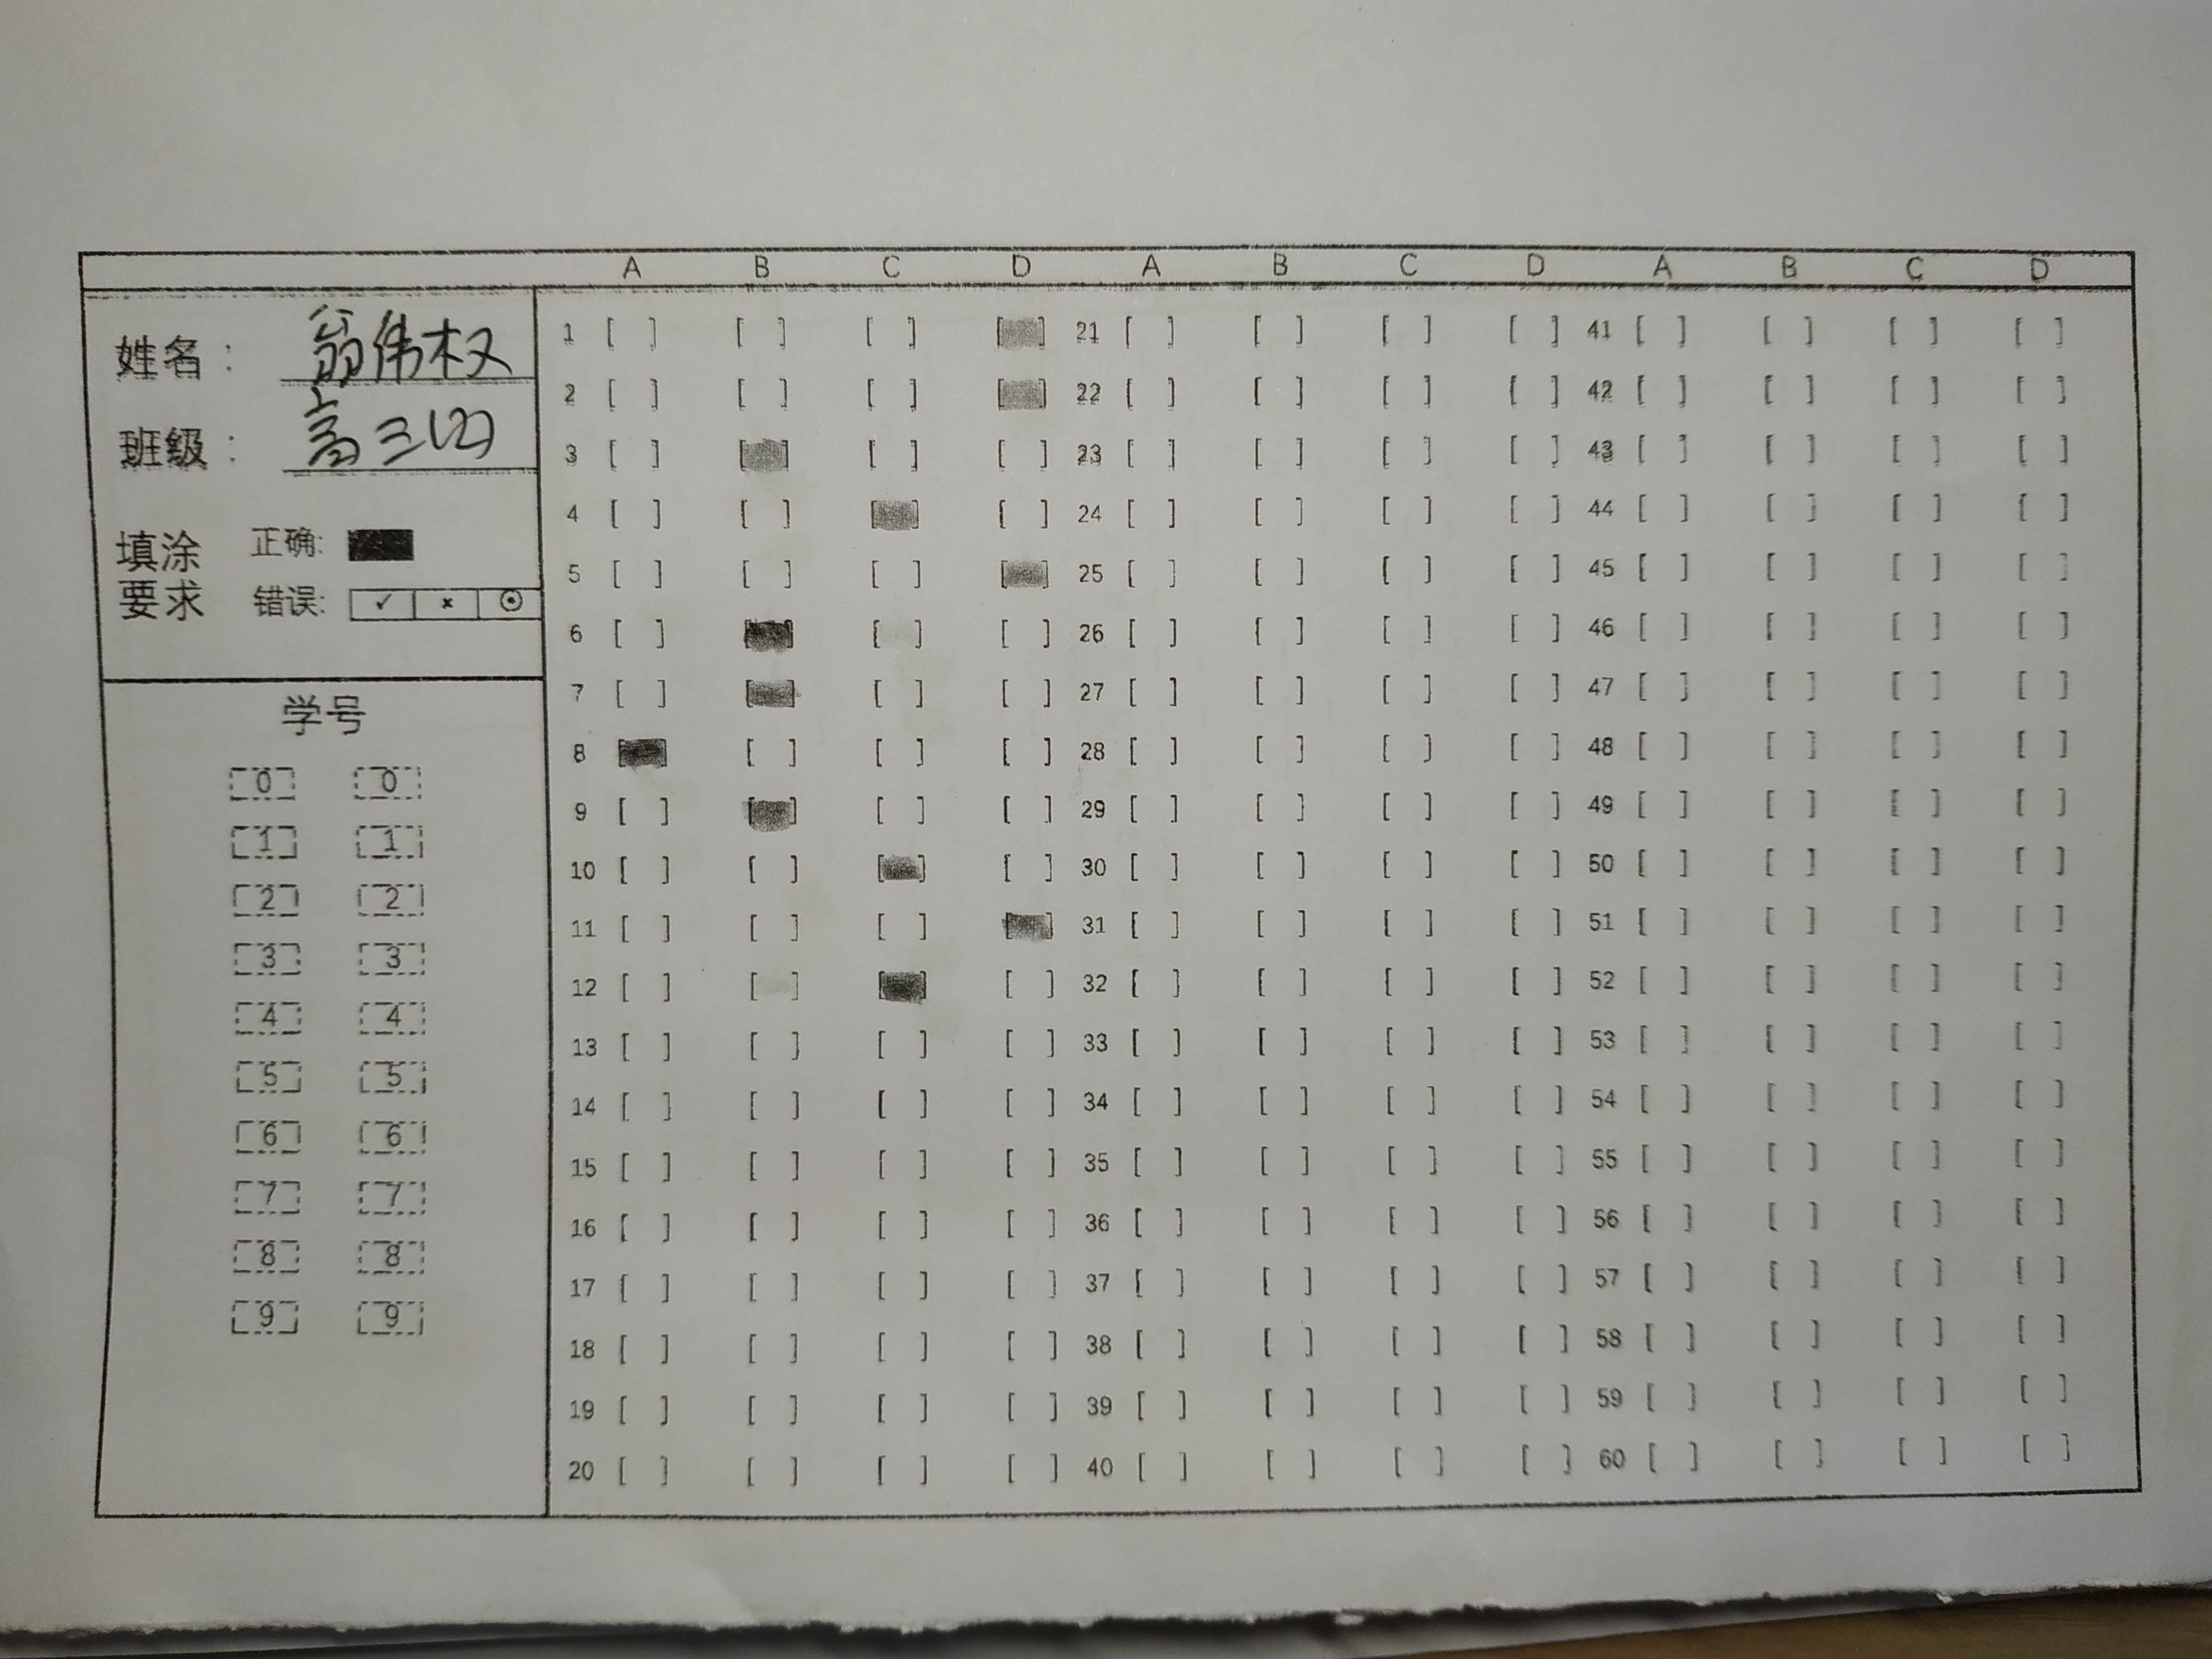 A B C D A B C D A B C D
姓名： 翁伟权
班级： 高三(2)
填涂要求 正确:
错误: ✓ × ⊙
学号
0 0
1 1
2 2
3 3
4 4
5 5
6 6
7 7
8 8
9 9
1 [ ] [ ] [ ] [ ] 21 [ ] [ ] [ ] [ ] 41 [ ] [ ] [ ] [ ]
2 [ ] [ ] [ ] [ ] 22 [ ] [ ] [ ] [ ] 42 [ ] [ ] [ ] [ ]
3 [ ] [ ] [ ] [ ] 23 [ ] [ ] [ ] [ ] 43 [ ] [ ] [ ] [ ]
4 [ ] [ ] [ ] [ ] 24 [ ] [ ] [ ] [ ] 44 [ ] [ ] [ ] [ ]
5 [ ] [ ] [ ] [ ] 25 [ ] [ ] [ ] [ ] 45 [ ] [ ] [ ] [ ]
6 [ ] [ ] [ ] [ ] 26 [ ] [ ] [ ] [ ] 46 [ ] [ ] [ ] [ ]
7 [ ] [ ] [ ] [ ] 27 [ ] [ ] [ ] [ ] 47 [ ] [ ] [ ] [ ]
8 [ ] [ ] [ ] [ ] 28 [ ] [ ] [ ] [ ] 48 [ ] [ ] [ ] [ ]
9 [ ] [ ] [ ] [ ] 29 [ ] [ ] [ ] [ ] 49 [ ] [ ] [ ] [ ]
10 [ ] [ ] [ ] [ ] 30 [ ] [ ] [ ] [ ] 50 [ ] [ ] [ ] [ ]
11 [ ] [ ] [ ] [ ] 31 [ ] [ ] [ ] [ ] 51 [ ] [ ] [ ] [ ]
12 [ ] [ ] [ ] [ ] 32 [ ] [ ] [ ] [ ] 52 [ ] [ ] [ ] [ ]
13 [ ] [ ] [ ] [ ] 33 [ ] [ ] [ ] [ ] 53 [ ] [ ] [ ] [ ]
14 [ ] [ ] [ ] [ ] 34 [ ] [ ] [ ] [ ] 54 [ ] [ ] [ ] [ ]
15 [ ] [ ] [ ] [ ] 35 [ ] [ ] [ ] [ ] 55 [ ] [ ] [ ] [ ]
16 [ ] [ ] [ ] [ ] 36 [ ] [ ] [ ] [ ] 56 [ ] [ ] [ ] [ ]
17 [ ] [ ] [ ] [ ] 37 [ ] [ ] [ ] [ ] 57 [ ] [ ] [ ] [ ]
18 [ ] [ ] [ ] [ ] 38 [ ] [ ] [ ] [ ] 58 [ ] [ ] [ ] [ ]
19 [ ] [ ] [ ] [ ] 39 [ ] [ ] [ ] [ ] 59 [ ] [ ] [ ] [ ]
20 [ ] [ ] [ ] [ ] 40 [ ] [ ] [ ] [ ] 60 [ ] [ ] [ ] [ ]